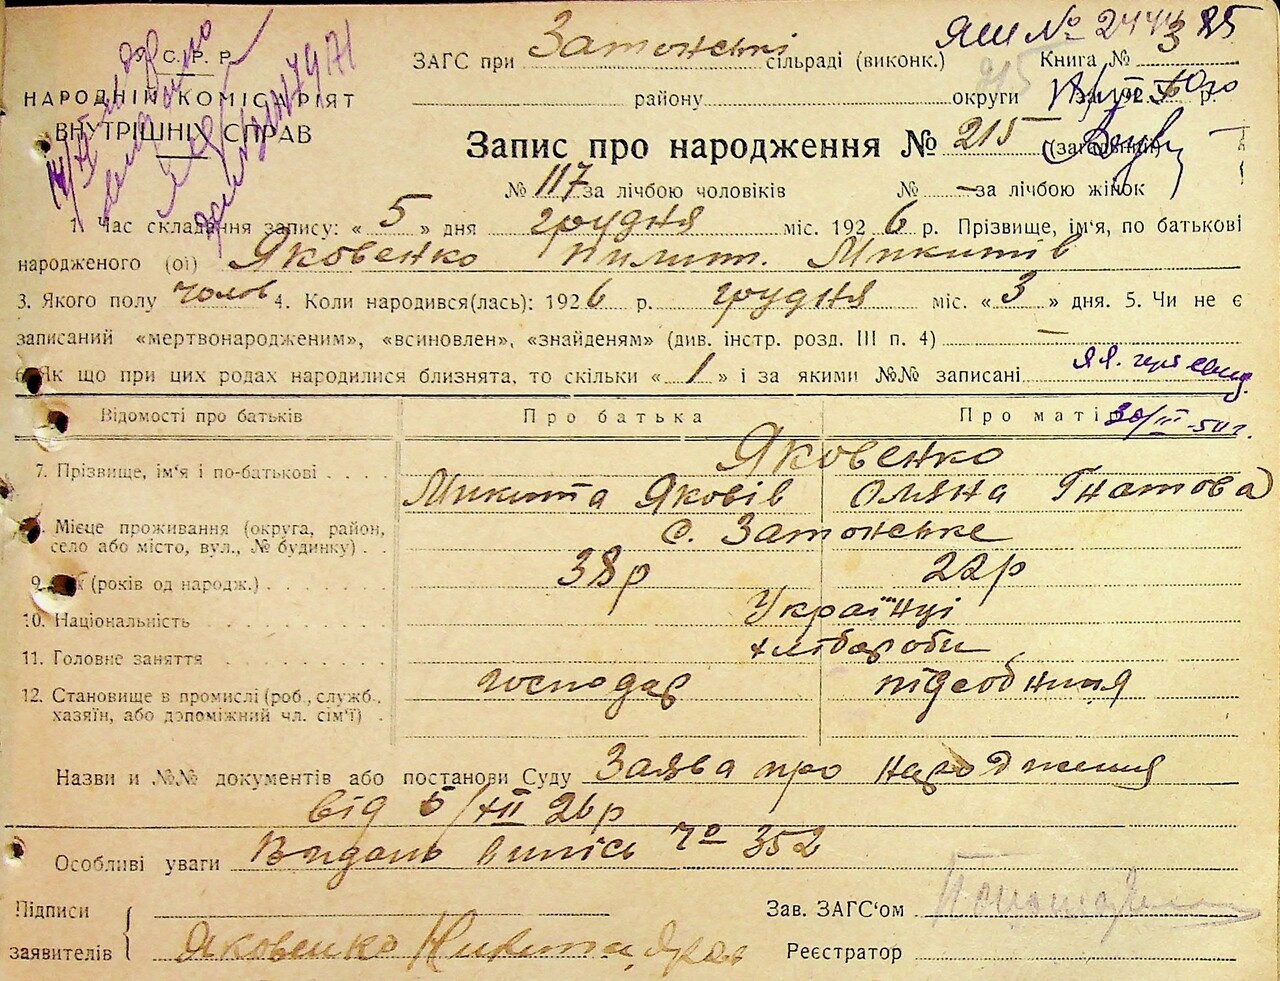 У. С. Р. Р.
НАРОДНІЙ КОМІСАРІЯТ
ВНУТРІШНІХ СПРАВ
ЗАГС при Затонській сільраді (виконк.) Книга № 3
району округи за 192 р.
ЯШ № 2444 85
Запис про народження № 215 (загальний)
№ 117 за лічбою чоловіків № — за лічбою жінок
1. Час складання запису: « 5 » дня грудня міс. 192 6 р. Прізвище, ім'я, по батькові
народженого (ої) Яковенко Пилип. Микитів
3. Якого полу чолов 4. Коли народився(лась): 192 6 р. грудня міс. « 3 » дня. 5. Чи не є
записаний «мертвонародженим», «всиновлен», «знайденям» (див. інстр. розд. III п. 4) —
6. Як що при цих родах народилися близнята, то скільки « 1 » і за якими №№ записані
30/III-50 г.
Відомості про батьків Про батька Про матір
7. Прізвище, ім'я і по-батькові Яковенко
Микита Яковів Оляна Гнатова
8. Місце проживання (округа, район, село або місто, вул., № будинку) с. Затонське
9. Вік (років од народж.) 38р 22р
10. Національність Українці
11. Головне заняття хлібароби
12. Становище в промислі (роб., служб., хазяїн, або допоміжний чл. сім'ї) господар підсобниця
Назви и №№ документів або постанови Суду Заява про народження
від 5/XII 26р
Особливі уваги Видань випісь № 352
Підписи
заявителів Яковенко Никита
Зав. ЗАГС'ом
Реєстратор